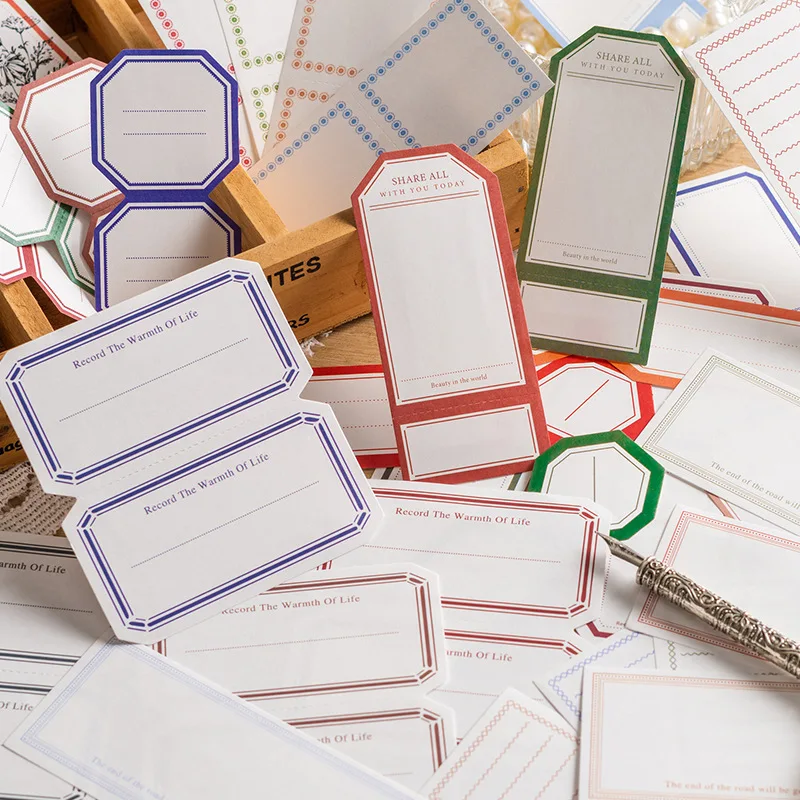 SHARE ALL
WITH YOU TODAY
Beauty in the world
SHARE ALL
WITH YOU TODAY
Beauty in the world
Record The Warmth Of Life
Record The Warmth Of Life
The end of the road will
Record The Warmth Of Life
Warmth Of Life
Record The Warmth Of Life
Warmth Of Life
Of Life
Of Life
The end of the road
The end of the road will be